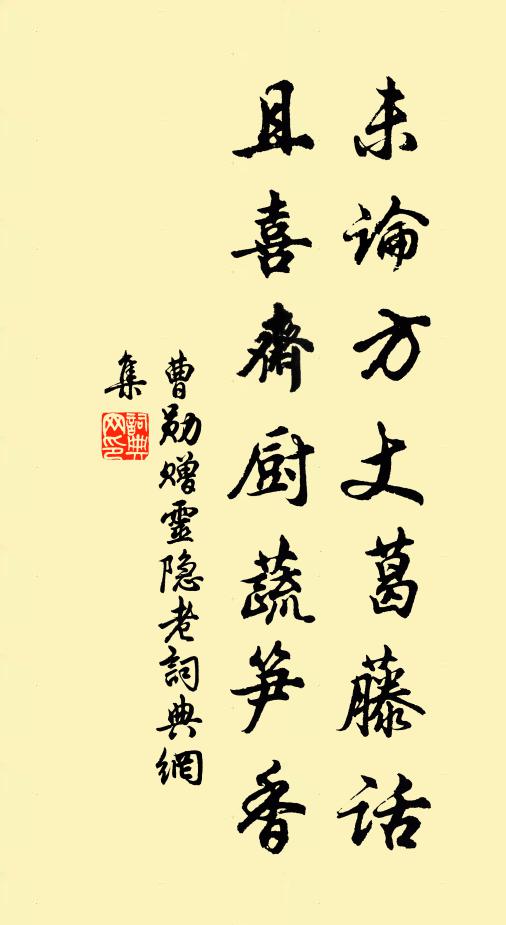 未论方丈葛藤话
且喜齋厨蔬笋香
曹勋赠靈隐老詞典網
集
詞典
网印